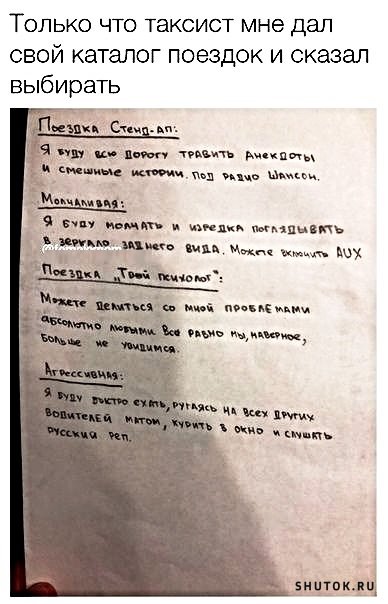 Только что таксист мне дал
свой каталог поездок и сказал
выбирать
Поездка Стенд-ап:
Я буду всю дорогу травить анекдоты
и смешные истории. Под радио Шансон.
Молчаливая:
Я буду молчать и изредка поглядывать
в зеркало заднего вида. Можете включить AUX
Поездка „Твой психолог":
Можете делиться со мной проблемами
абсолютно любыми. Все равно мы, наверное,
больше не увидимся.
Агрессивная:
Я буду быстро ехать, ругаясь на всех других
водителей матом, курить в окно и слушать
русский реп.
SHUTOK.RU